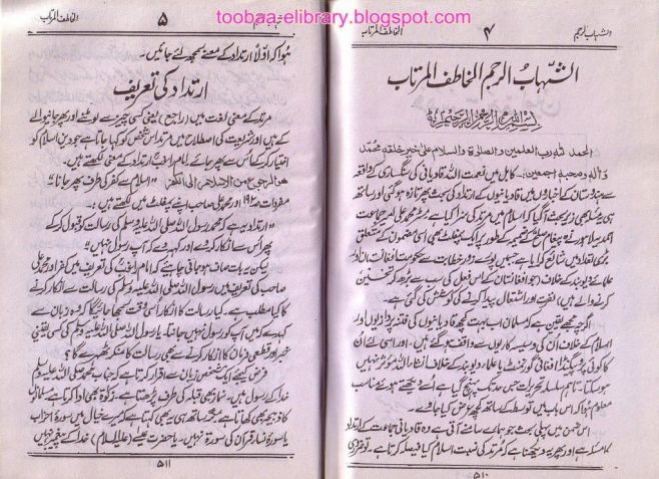 toobaa-elibrary.blogspot.com
الشہاب الرجیم
۴
الخاطف المرتاب
الشہابُ الرجیم الخاطف المرتاب
بسم اللہ الرحمن الرحیم
الحمد للہ رب العلمین والصلوٰۃ والسلام علیٰ خیر خلقہٖ محمد
وآلہٖ وصحبہٖ اجمعین۔ کابل میں نعمت اللہ قادیانی کی سنگساری کے واقعہ
سے ہندوستان کے اخباروں میں قادیانیوں کے ارتداد کی بحث پھر تازہ ہوگئی اور ساتھ
ہی یہ مسئلہ بھی زیر بحث آگیا کہ اسلام میں مرتد کی سزا کیا ہے
احمدیہ لاہور نے پیغام صلح کے ضمیمہ کے طور پر ایک پمفلٹ بھی اسی مضمون کے متعلق
بڑی تعداد میں شائع کرایا ہے جس میں پورے زور خطابت سے حکومت افغانستان اور
علمائے دیوبند کے خلاف (جو افغانستان کے اس فعل کی سب سے بڑھ کر تحسین
کرنے والے ہیں) نفرت اور اشتعال پیدا کرنے کی کوشش کی گئی ہے۔
اگرچہ مجھے یقین ہے کہ مسلمان اب بہت کچھ قادیانیوں کی فتنہ پردازیوں اور
اسلام کے خلاف ان کی دسیسہ کاریوں سے واقف ہوگئے ہیں۔ اور اسی لئے ان
کا کوئی پروپیگنڈا افغانی گورنمنٹ یا علماء دیوبند کے خلاف انشاء اللہ مؤثر نہیں
ہوسکتا۔ تاہم سلسلہ تحریرات جس حد تک پہنچ گیا ہے اسے دیکھتے ہوئے مناسب
معلوم ہوا کہ اس باب میں توسط کے ساتھ کچھ عرض کیا جاوے۔
اس ضمن میں پہلی بحث جو ہمارے سامنے آتی ہے وہ قادیانی جماعت کے ارتداد
کا مسئلہ ہے اور پھر یہ دیکھنا ہے کہ مرتد کی نسبت اسلام کیا فیصلہ کرتا ہے۔ تو ضروری
۵۱۰
۵
الخاطف المرتاب
ہوا کہ اولاً ارتداد کے معنے سمجھ لئے جائیں۔
ارتداد کی تعریف
مرتد کے معنی لغت میں (راجع) یعنی کسی چیز سے لوٹنے اور پھر جانیوالے
کے ہیں اور شریعت کی اصطلاح میں مرتد اس شخص کو کہا جاتا ہے جو دین اسلام کو
اختیار کر کے اس سے پھر جائے۔ امام راغب ارتداد کے معنی لکھتے ہیں۔
ھو الرجوع من الاسلام الی الکفر "اسلام سے کفر کی طرف پھر جانا"
مفردات محمد علی صاحب اپنے پمفلٹ میں لکھتے ہیں:
"ارتداد یہ ہے کہ محمد رسول اللہ صلی اللہ علیہ وسلم کی رسالت کو قبول کر کے
پھر اس سے انکار کرے اور کہدے کہ آپ رسول نہیں"
لیکن یہ بات صاف ہو جانی چاہئے کہ امام راغب کی تعریف میں کفر اور محمد علی
صاحب کی تعریف میں رسول اللہ صلی اللہ علیہ وسلم کی رسالت سے انکار کرنے
کا کیا مطلب ہے۔ کیا رسالت کا انکار اُسی وقت سمجھا جائیگا کہ وہ زبان سے
کہدے کہ میں آپ کو رسول نہیں جانتا۔ یا رسول اللہ صلی اللہ علیہ وسلم کی کسی یقینی
خبر اور قطعی فرمان کا انکار کرنے سے بھی رسالت کا منکر ٹھہرے گا؟
فرض کیجئے ایک شخص زبان سے اقرار کرتا ہے کہ جناب محمد صلی اللہ علیہ وسلم
خدا کے رسول ہیں۔ نماز بھی قبلہ کی طرف پڑھتا ہے۔ زکوٰۃ بھی ادا کرتا ہے مسلمانوں
کا ذبیحہ بھی کھاتا ہے۔ مگر ساتھ ہی یہ بھی کہتا ہے کہ میرے خیال میں سورہ احزاب
یا سورۃ نساء قرآن کی سورۃ نہیں۔ یا حضرت عیسیٰ (علیہ السلام) خدا کے پیغمبر نہیں
۵۱۱